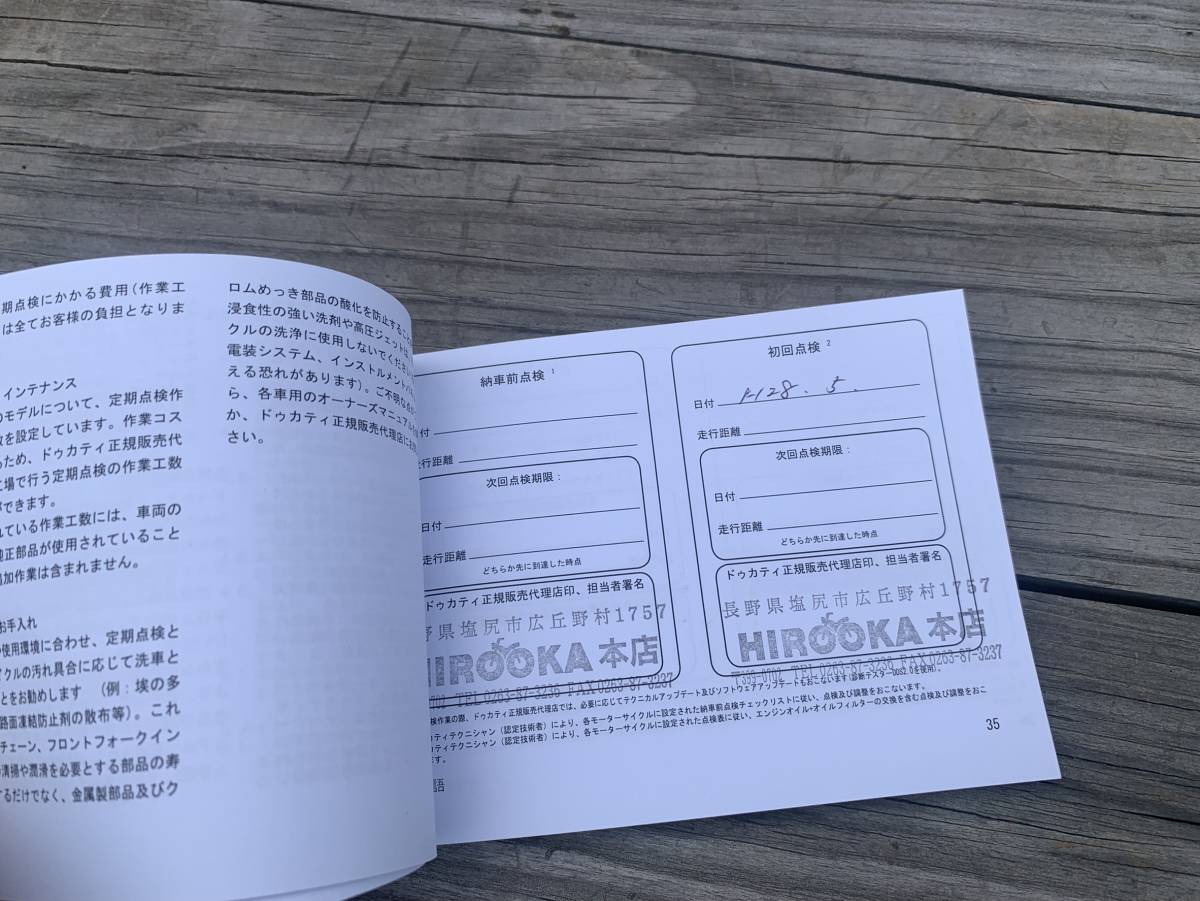 期点検にかかる費用(作業工
は全てお客様の負担となりま
インテナンス
のモデルについて、定期点検作
数を設定しています。作業コス
ため、ドゥカティ正規販売代
工場で行う定期点検の作業工数
ができます。
れている作業工数には、車両の
純正部品が使用されていること
追加作業は含まれません。
お手入れ
使用環境に合わせ、定期点検と
イクルの汚れ具合に応じて洗車と
ことをお勧めします (例:埃の多
路面凍結防止剤の散布等)。これ
チェーン、フロントフォークイン
清掃や潤滑を必要とする部品の寿
するだけでなく、金属製部品及びク
ロムめっき部品の酸化を防止する
浸食性の強い洗剤や高圧ジェット
クルの洗浄に使用しないでください
電装システム、インストルメント
える恐れがあります)。ご不明な点
ら、各車用のオーナーズマニュアル
か、ドゥカティ正規販売代理店に
さい。
納車前点検 1
付
走行距離
次回点検期限:
日付
走行距離
どちらか先に到達した時点
ドゥカティ正規販売代理店印、担当者署名
野県塩尻市広丘野村1757
HIROOKA 本店
0702 TEL 0263-87-3236 FAX 0263-87-3237
初回点検 2
日付 H28.5.
走行距離
次回点検期限:
日付
走行距離
どちらか先に到達した時点
ドゥカティ正規販売代理店印、担当者署名
長野県塩尻市広丘野村1757
HIROOKA 本店
〒399-0702 TEL 0263-87-3236 FAX 0263-87-3237
検作業の際、ドゥカティ正規販売代理店では、必要に応じてテクニカルアップデート及びソフトウェアアップデートもおこないます(診断テスターDDS2.0を使用)。
カティテクニシャン(認定技術者)により、各モーターサイクルに設定された納車前点検チェックリストに従い、点検及び調整をおこないます。
カティテクニシャン(認定技術者)により、各モーターサイクルに設定された点検表に従い、エンジンオイル・オイルフィルターの交換を含む点検及び調整をおこ
ます。
語
35